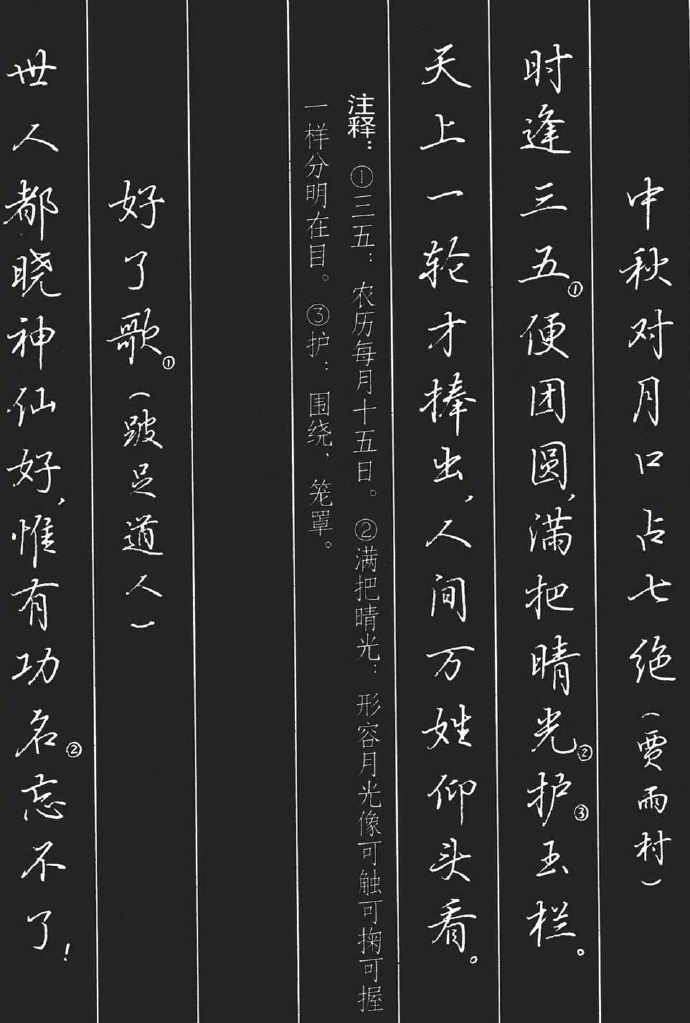 中秋对月口占七绝(贾雨村)
时逢三五①便团圆,满把晴光②护③玉栏。
天上一轮才捧出,人间万姓仰头看。
注释:①三五:农历每月十五日。②满把晴光:形容月光像可触可掬可握
一样分明在目。③护:围绕、笼罩。
好了歌①(跛足道人)
世人都晓神仙好,惟有功名②忘不了!